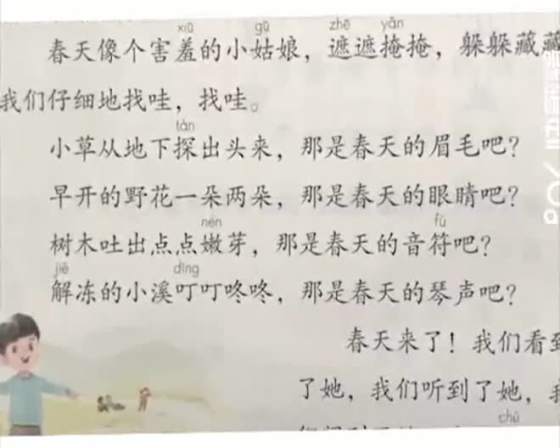 xiū gū zhē yǎn
春天像个害羞的小姑娘，遮遮掩掩，躲躲藏藏
我们仔细地找哇，找哇。
tàn
小草从地下探出头来，那是春天的眉毛吧？
早开的野花一朵两朵，那是春天的眼睛吧？
nèn fú
树木吐出点点嫩芽，那是春天的音符吧？
jiě dīng
解冻的小溪叮叮咚咚，那是春天的琴声吧？
春天来了！我们看到
了她，我们听到了她，我
chù